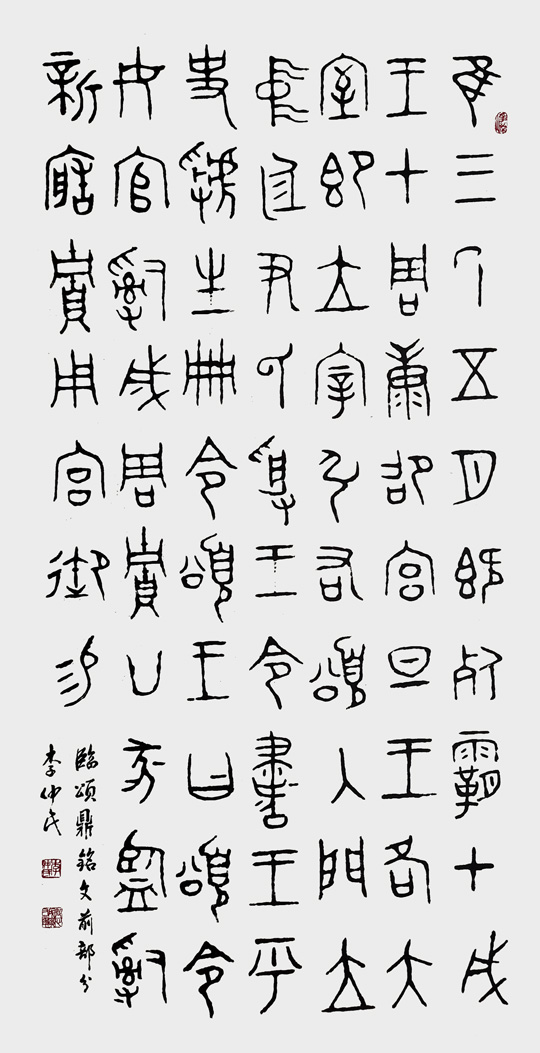 隹三年五月既死霸甲戌
王才周康卲宮旦王各大
室即立宰引右頌入門立
中廷尹氏受王令書王乎
史虢生冊令頌王曰頌令
女官𤔲成周貯廿家監𤔲
新造貯用宮御
臨頌鼎銘文前部分
李仲民